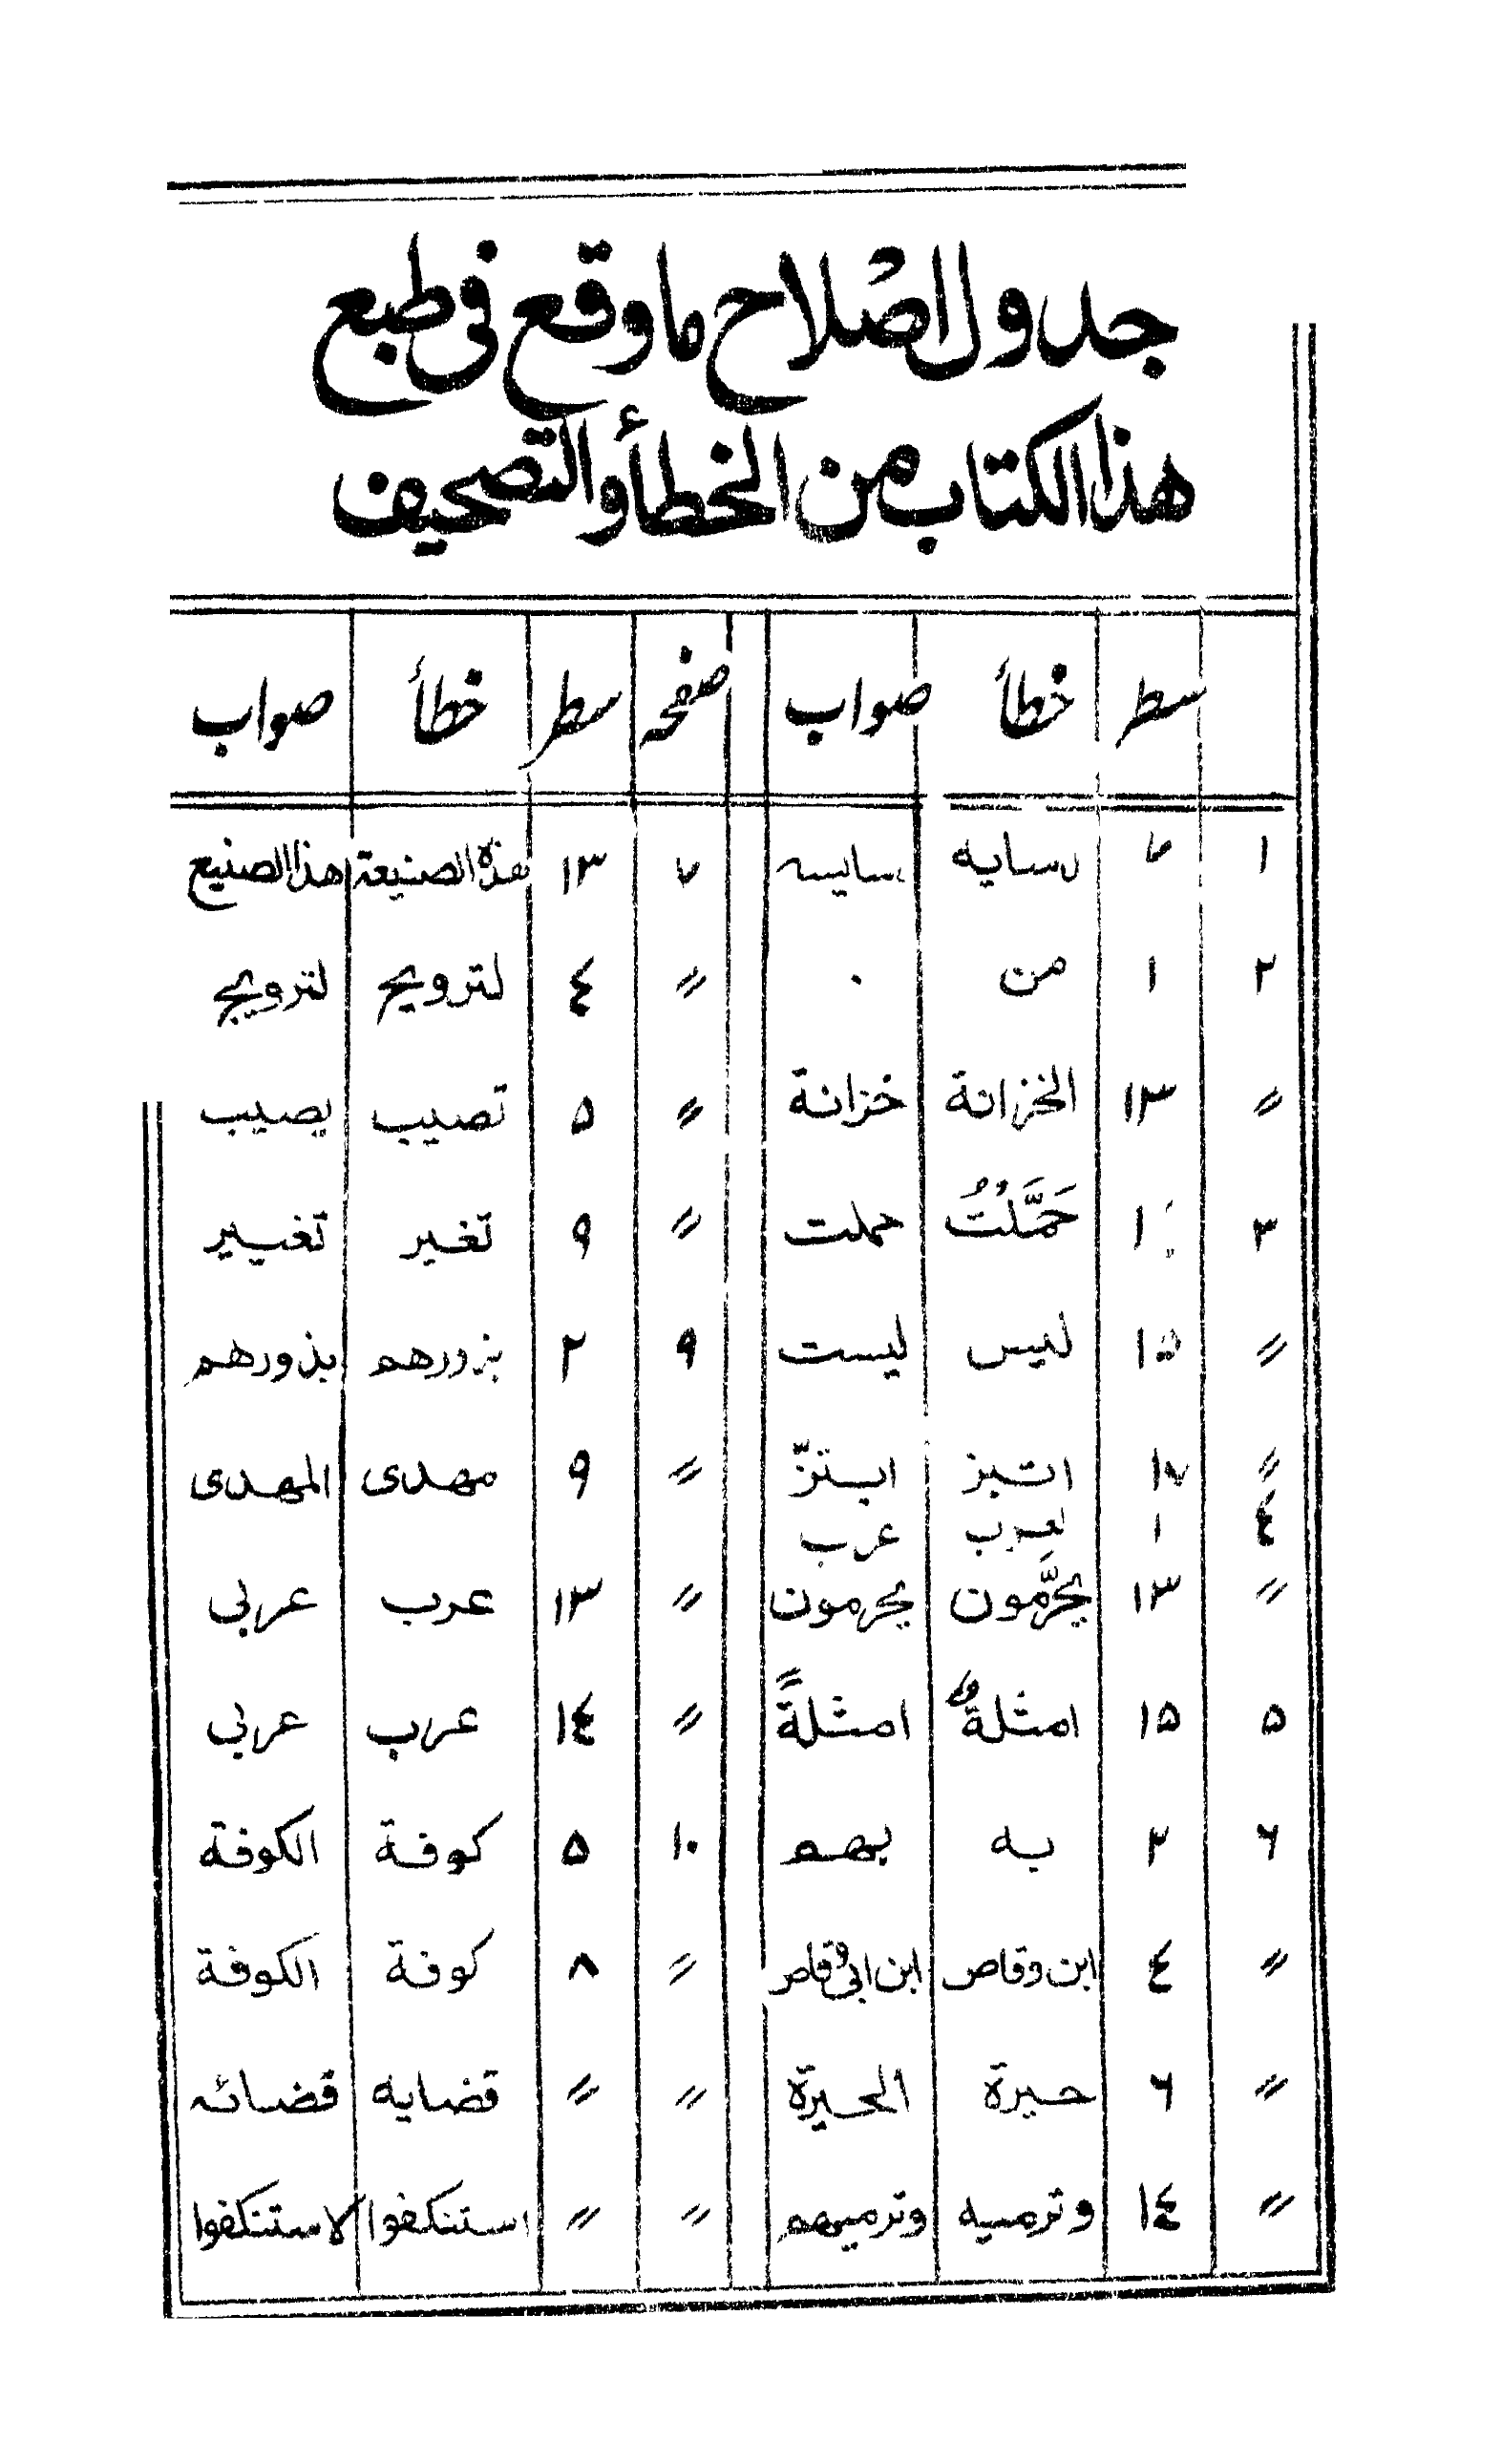 جدول اصلاح ما وقع فی طبع
هذا الكتاب من الخطأ والتصحیف
سطر خطأ صواب صفحه سطر خطأ صواب
١ ٧ رسایه رسایسه ٧ ١٣ هذه الصنیعة هذا الصنیع
٢ ١ من ۰ 〃 ٤ لترویح لترویج
〃 ١٣ الخزانة خزانة 〃 ۵ تصیب یصیب
٣ ١٠ حَمَّلْتُ حملت 〃 ٩ تغیر تغییر
〃 ١۵ لیس لیست ٩ ٢ بزورهم بذورهم
〃 ١٧ اتبز ابتزّ 〃 ٩ مهدی المهدی
٤ ١ لعرب عرب
〃 ١٣ یحرَّمون یحرمون 〃 ١٣ عرب عربی
۵ ١۵ امثلة امثلةً 〃 ١٤ عرب عربی
٦ ٢ به بهم ١٠ ۵ كوفة الكوفة
〃 ٤ ابن وقاص ابن ابی وقاص 〃 ٨ كوفة الكوفة
〃 ٦ حیرة الحیرة 〃 〃 قضایه قضائه
〃 ١٤ وترمیه وترمیهم 〃 〃 استنكفوا لاستنكفوا